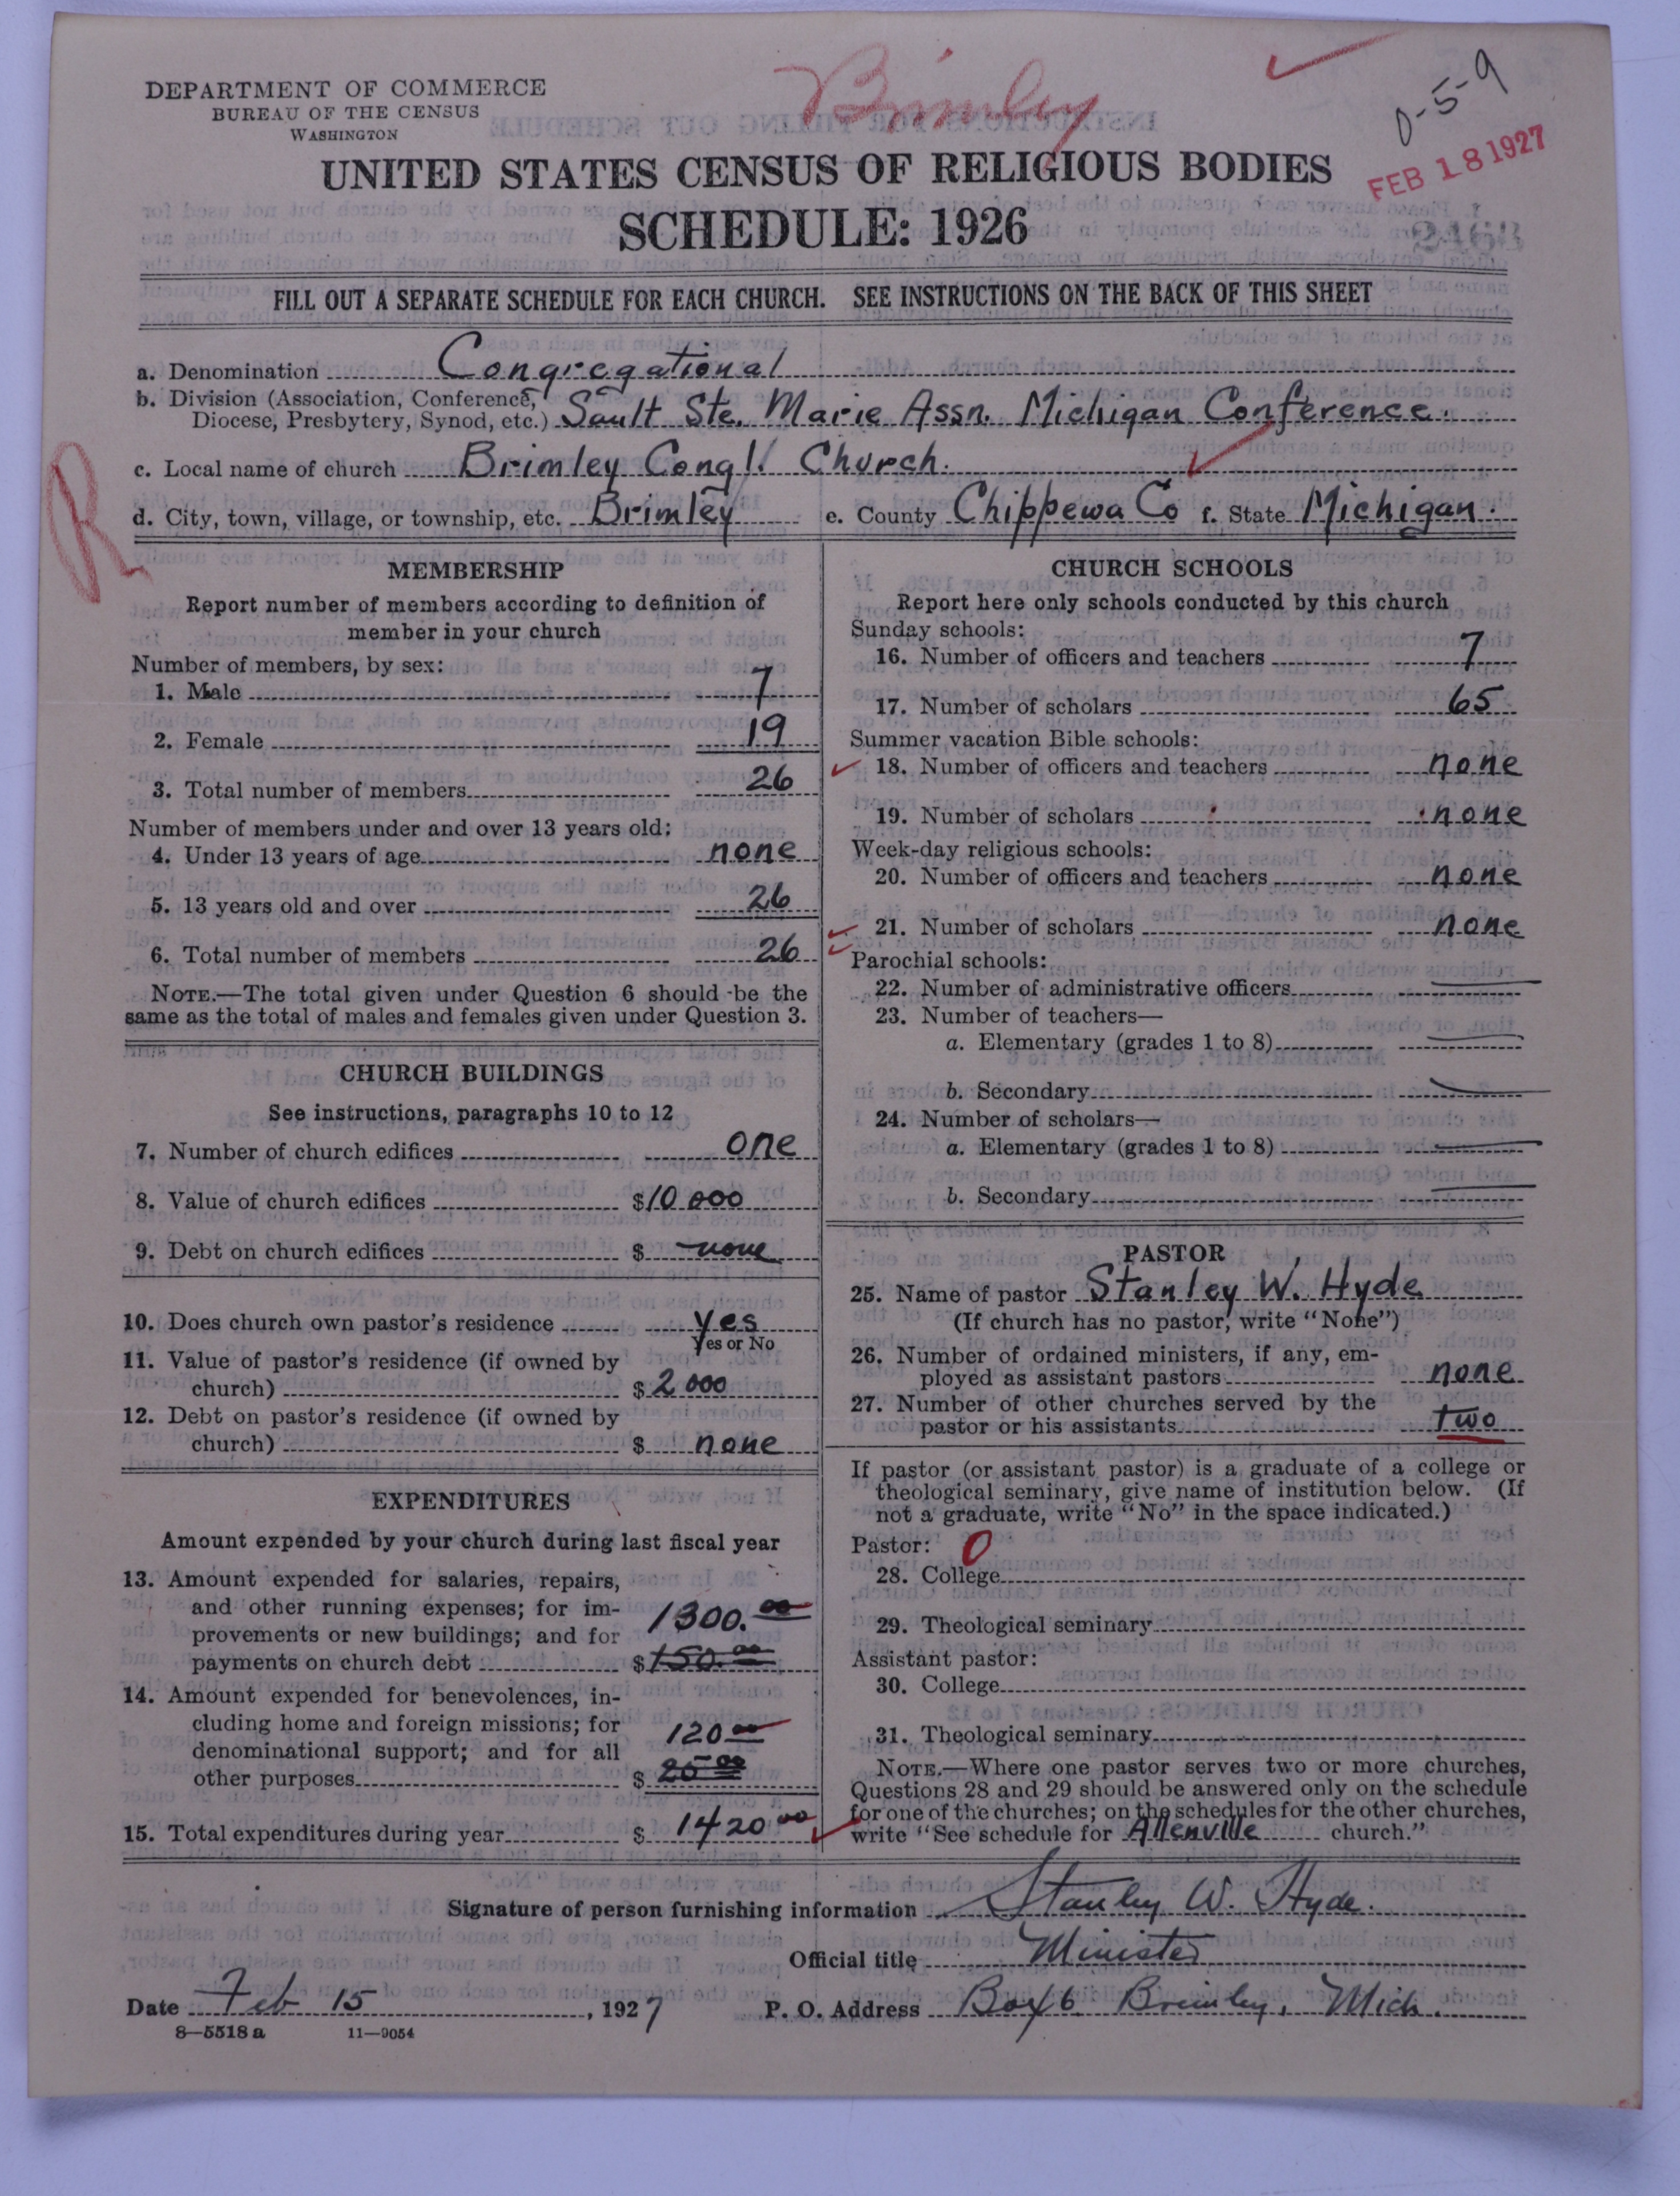 Brimley
0-5-9
DEPARTMENT OF COMMERCE
BUREAU OF THE CENSUS
WASHINGTON
FEB 18 1927
UNITED STATES CENSUS OF RELIGIOUS BODIES
SCHEDULE: 1926
2463
FILL OUT A SEPARATE SCHEDULE FOR EACH CHURCH. SEE INSTRUCTIONS ON THE BACK OF THIS SHEET
R
a. Denomination Congregational
b. Division (Association, Conference,
Diocese, Presbytery, Synod, etc.) Sault Ste. Marie Assn. Michigan Conference.
c. Local name of church Brimley Congl. Church.
d. City, town, village, or township, etc. Brimley e. County Chippewa Co f. State Michigan.
MEMBERSHIP
Report number of members according to definition of
member in your church
Number of members, by sex:
1. Male 7
2. Female 19
3. Total number of members 26
Number of members under and over 13 years old:
4. Under 13 years of age none
5. 13 years old and over 26
6. Total number of members 26
NOTE.—The total given under Question 6 should be the
same as the total of males and females given under Question 3.
CHURCH BUILDINGS
See instructions, paragraphs 10 to 12
7. Number of church edifices one
8. Value of church edifices $10 000
9. Debt on church edifices $ none
10. Does church own pastor's residence yes
Yes or No
11. Value of pastor's residence (if owned by
church) $2 000
12. Debt on pastor's residence (if owned by
church) $ none
EXPENDITURES
Amount expended by your church during last fiscal year
13. Amount expended for salaries, repairs,
and other running expenses; for im-
provements or new buildings; and for 1300.00
payments on church debt $150.00
14. Amount expended for benevolences, in-
cluding home and foreign missions; for
denominational support; and for all 120 00
other purposes $ 25 00
15. Total expenditures during year $ 1420 00
CHURCH SCHOOLS
Report here only schools conducted by this church
Sunday schools:
16. Number of officers and teachers 7
17. Number of scholars 65
Summer vacation Bible schools:
18. Number of officers and teachers none
19. Number of scholars none
Week-day religious schools:
20. Number of officers and teachers none
21. Number of scholars none
Parochial schools:
22. Number of administrative officers
23. Number of teachers—
a. Elementary (grades 1 to 8)
b. Secondary
24. Number of scholars—
a. Elementary (grades 1 to 8)
b. Secondary
PASTOR
25. Name of pastor Stanley W. Hyde
(If church has no pastor, write "None")
26. Number of ordained ministers, if any, em-
ployed as assistant pastors none
27. Number of other churches served by the
pastor or his assistants two
If pastor (or assistant pastor) is a graduate of a college or
theological seminary, give name of institution below. (If
not a graduate, write "No" in the space indicated.)
Pastor: 0
28. College
29. Theological seminary
Assistant pastor:
30. College
31. Theological seminary
NOTE.—Where one pastor serves two or more churches,
Questions 28 and 29 should be answered only on the schedule
for one of the churches; on the schedules for the other churches,
write "See schedule for Allenville church."
Signature of person furnishing information Stanley W. Hyde.
Official title Minister
Date Feb 15, 1927 P. O. Address Box 6 Brimley, Mich.
8—5518 a 11—9054